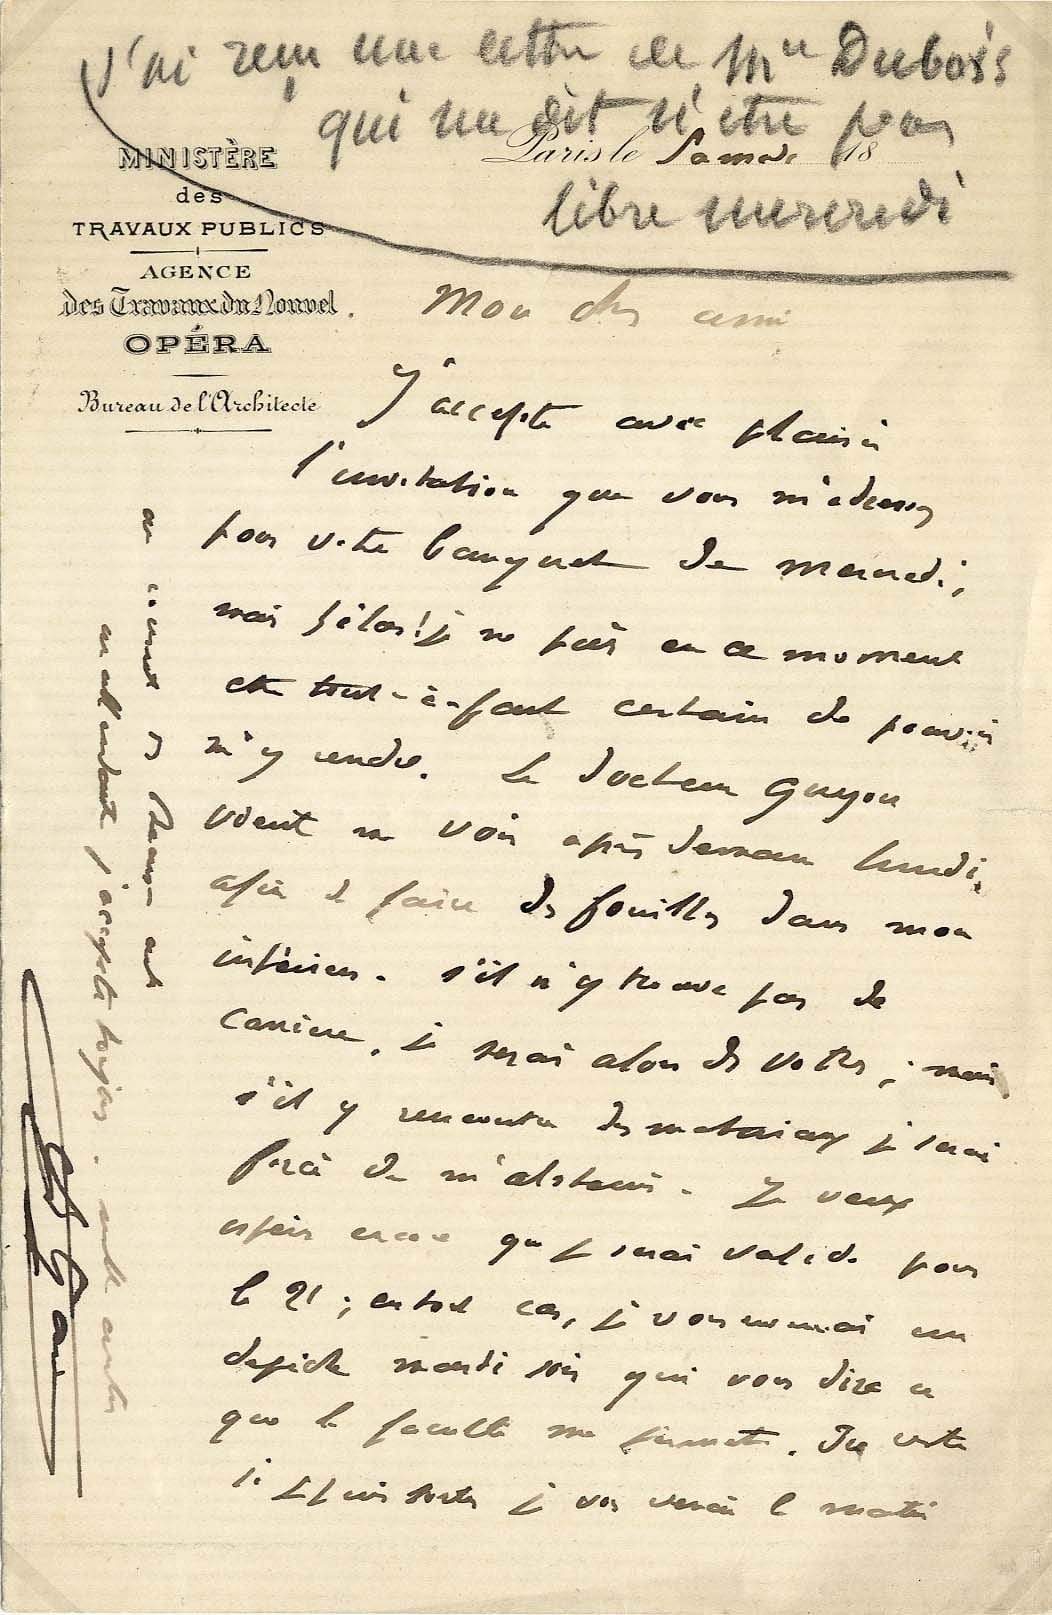 J'ai reçu une lettre de Mr Dubois
qui me dit n'être pas
libre mercredi
MINISTÈRE
des
TRAVAUX PUBLICS
AGENCE
des Travaux du Nouvel
OPÉRA
Bureau de l'Architecte
Paris le Samedi 18
Mon cher ami
J'accepte avec plaisir
l'invitation que vous m'adressez
pour votre banquet de mercredi,
mais hélas! je ne puis en ce moment
être tout-à-fait certain de pouvoir
m'y rendre. Le docteur Guyon
vient me voir après demain lundi,
afin de faire des fouilles dans mon
intérieur. s'il n'y trouve pas de
carrière, je serai alors des votres; mais
s'il y rencontre des matériaux je serai
forcé de m'abstenir. Je veux
espérer encore que je serai valide pour
le 21; en tout cas, je vous enverrai une
dépêche mardi soir qui vous dira ce
que la faculté me permet. Du reste
si je puis sortir je vous verrai le matin
au comité
en attendant j'accepte toujours. mille amitiés
Ch Garnier